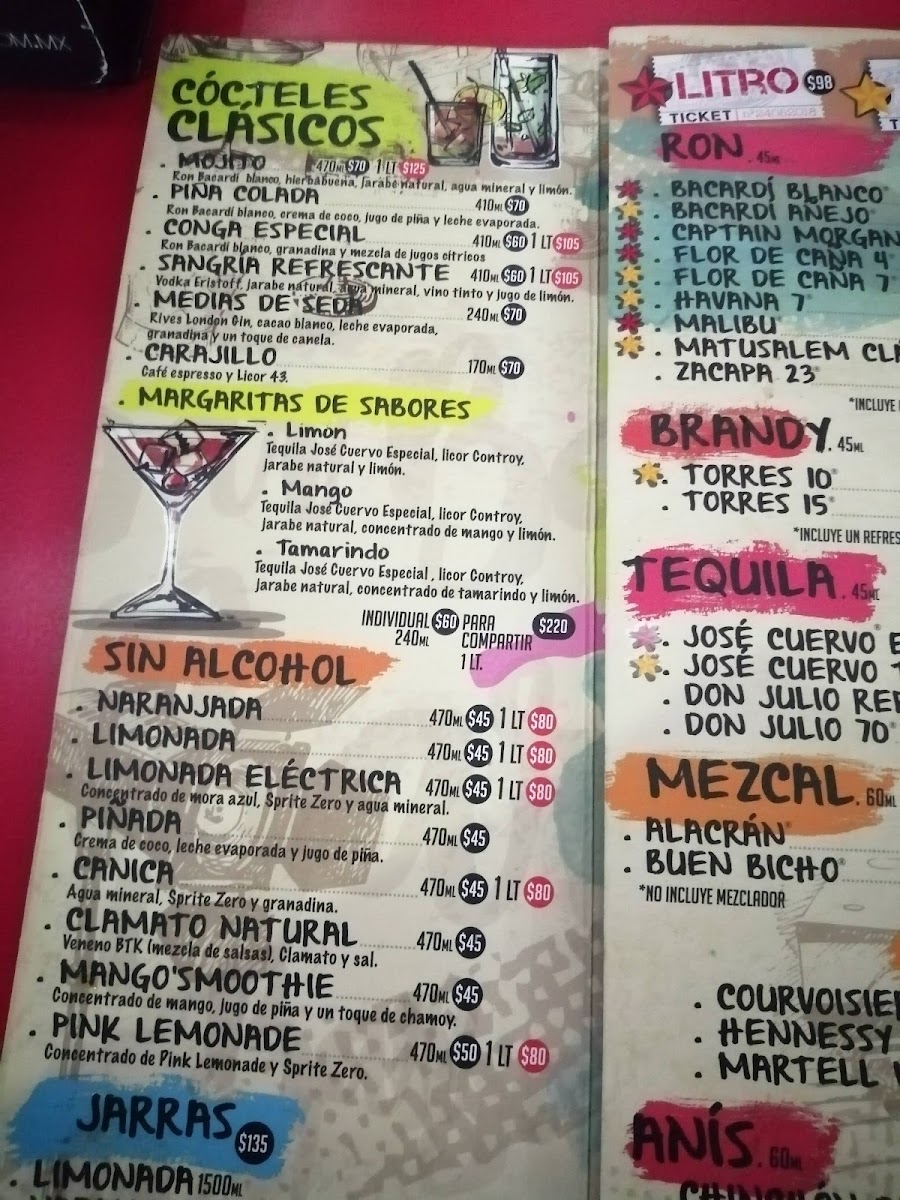 OM.MX
CÓCTELES
CLÁSICOS
. MOJITO 470ML $70 1 LT $125
Ron Bacardí blanco, hierbabuena, jarabe natural, agua mineral y limón.
. PIÑA COLADA 410ML $70
Ron Bacardí blanco, crema de coco, jugo de piña y leche evaporada.
. CONGA ESPECIAL 410ML $60 1 LT $105
Ron Bacardí blanco, granadina y mezcla de jugos cítricos
. SANGRÍA REFRESCANTE 410ML $60 1 LT $105
Vodka Eristoff, jarabe natural, agua mineral, vino tinto y jugo de limón.
. MEDIAS DE SEDA 240ML $70
Rives London Gin, cacao blanco, leche evaporada,
granadina y un toque de canela.
. CARAJILLO 170ML $70
Café espresso y Licor 43.
. MARGARITAS DE SABORES
. Limón
Tequila José Cuervo Especial, licor Controy,
jarabe natural y limón.
. Mango
Tequila José Cuervo Especial, licor Controy,
jarabe natural, concentrado de mango y limón.
. Tamarindo
Tequila José Cuervo Especial, licor Controy,
jarabe natural, concentrado de tamarindo y limón.
INDIVIDUAL $60 PARA $220
240ML COMPARTIR
1 LT.
SIN ALCOHOL
. NARANJADA 470ML $45 1 LT $80
. LIMONADA 470ML $45 1 LT $80
. LIMONADA ELÉCTRICA 470ML $45 1 LT $80
Concentrado de mora azul, Sprite Zero y agua mineral.
. PIÑADA 470ML $45
Crema de coco, leche evaporada y jugo de piña.
. CANICA 470ML $45 1 LT $80
Agua mineral, Sprite Zero y granadina.
. CLAMATO NATURAL 470ML $45
Veneno BTK (mezcla de salsas), Clamato y sal.
. MANGO'SMOOTHIE 470ML $45
Concentrado de mango, jugo de piña y un toque de chamoy.
. PINK LEMONADE 470ML $50 1 LT $80
Concentrado de Pink Lemonade y Sprite Zero.
JARRAS $135
. LIMONADA 1500ML
LITRO $98
TICKET
RON. 45ML
. BACARDÍ BLANCO®
. BACARDÍ AÑEJO®
. CAPTAIN MORGAN
. FLOR DE CAÑA 4®
. FLOR DE CAÑA 7
. HAVANA 7®
. MALIBU®
. MATUSALEM CLA
. ZACAPA 23®
*INCLUYE
BRANDY. 45ML
. TORRES 10®
. TORRES 15®
*INCLUYE UN REFRES
TEQUILA. 45ML
. JOSÉ CUERVO® E
. JOSÉ CUERVO
. DON JULIO REP
. DON JULIO 70®
MEZCAL. 60ML
. ALACRÁN®
. BUEN BICHO®
*NO INCLUYE MEZCLADOR
. COURVOISIER
. HENNESSY
. MARTELL
ANÍS. 60ML